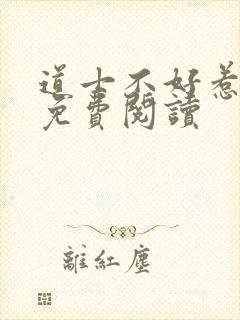 道士不好惹
免費閱讀
離紅塵